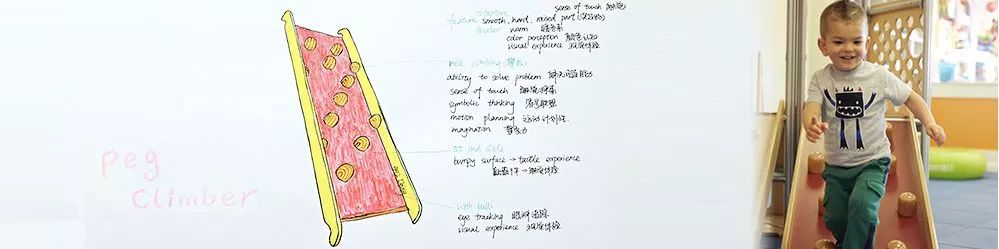 Peg
Climber
texture
sense of touch
feature
smooth, hard, raised part
color
warm 暖色系
color perception 颜色认知
visual experience 视觉体验
rock climbing
ability to solve problem 解决问题能力
sense of touch
symbolic thinking
motion planning 运动计划
imagination 想象力
sit and slide
bumpy surface → tactile experience
触觉体验
with balls
eye tracking 眼球追踪
visual experience 视觉体验